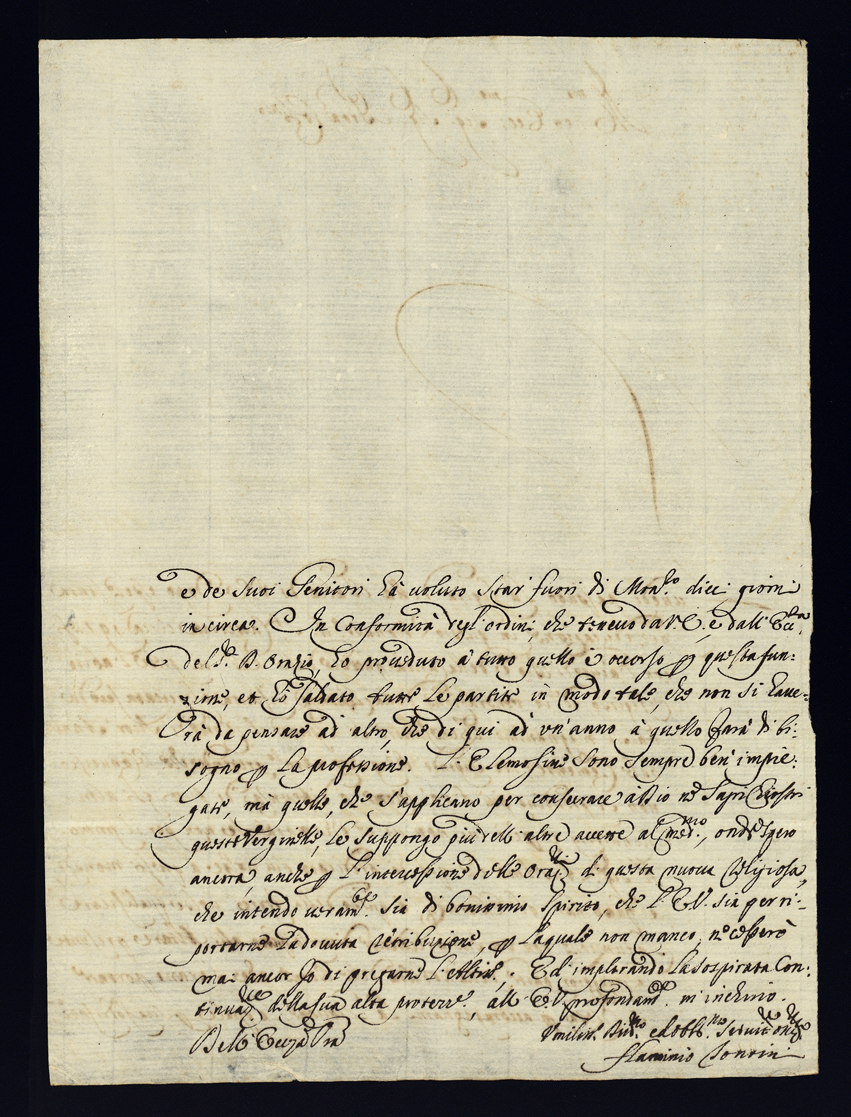 e de suoi Genitori hà voluto star fuori di Mon.ro dieci giorni
in circa. In conformità degl'ordini, che tenevo da V.E., e dall'Ecc.za
del S.r D. Orazio, hò proveduto à tutto quello è occorso p questa fun-
zione, et hò saldato tutte le partite in modo tale, che non si have-
rà da pensare ad altro, che di qui ad un'anno à quello farà di bi-
sogno p la professione. L'Elemosine sono sempre ben' impie-
gate, mà quelle, che s'applicano per consecrare à Dio ne sagri Chiostri
queste Verginelle, le suppongo più dell'altre accette al med.mo, onde spero
ancora, anche p l'intercessione delle Oraz.ni di questa nuova religiosa,
che intendo veram.te sia di bonissimo spirito, che l'E.V. sia per ri-
portarne la dovuta retribuzione, p la quale non manco, ne cesserò
mai ancor Io di pregarne l'Altis.mo. Ed implorando la sospirata Con-
tinuaz.ne della sua alta protez.e, all'E.V. profondam.te m'inchino.
Dell'Ecc.za V.ra
Umiliss.o Div.mo ed obb.mo Servit.e
Flaminio